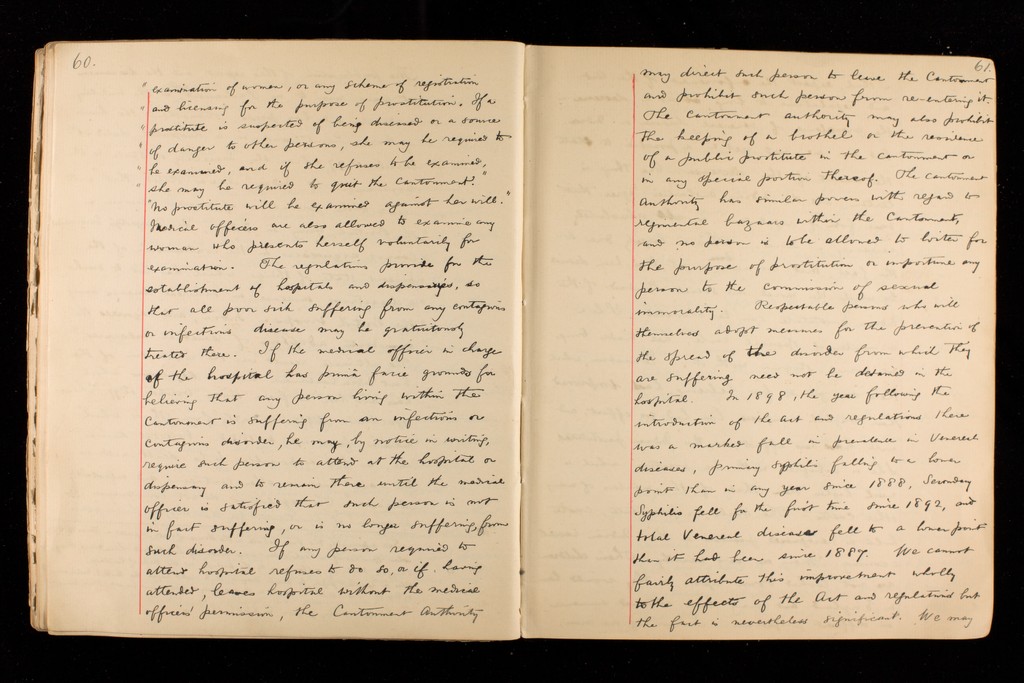 60.
" examination of women, or any scheme of registration
" and licensing for the purpose of prostitution. If a
" prostitute is suspected of being diseased or a source
" of danger to other persons, she may be required to
" be examined, and if she refuses to be examined,
" she may be required to quit the cantonment."
"No prostitute will be examined against her will."
Medical officers are also allowed to examine any
woman who presents herself voluntarily for
examination. The regulations provide for the
establishment of hospitals and dispensaries, so
that all poor sick suffering from any contagious
or infectious disease may be gratuitously
treated there. If the medical officer in charge
of the hospital has prima facie grounds for
believing that any person living within the
Cantonment is suffering from an infectious or
contagious disorder, he may, by notice in writing,
require such person to attend at the hospital or
dispensary and to remain there until the medical
officer is satisfied that such person is not
in fact suffering, or is no longer suffering, from
such disorder. If any person required to
attend hospital refuses to do so, or if having
attended, leaves hospital without the medical
officers permission, the Cantonment Authority
61.
may direct such person to leave the Cantonment
and prohibit such person from re-entering it.
The Cantonment authority may also prohibit
the keeping of a brothel or the residence
of a public prostitute in the cantonment or
in any special portion thereof. The cantonment
Authority has similar powers with regard to
regimental bazaars within the Cantonment,
and no person is to be allowed to loiter for
the purpose of prostitution or importune any
person to the commission of sexual
immorality. Respectable persons who will
themselves adopt measures for the prevention of
the spread of the disorder from which they
are suffering need not be detained in the
hospital. In 1898, the year following the
introduction of the act and regulations there
was a marked fall in prevalence in Venereal
diseases, primary syphilis falling to a lower
point than in any year since 1888, Secondary
Syphilis fell for the first time since 1892, and
total Venereal disease fell to a lower point
than it had been since 1887. We cannot
fairly attribute this improvement wholly
to the effects of the Act and regulations but
the fact is nevertheless significant. We may